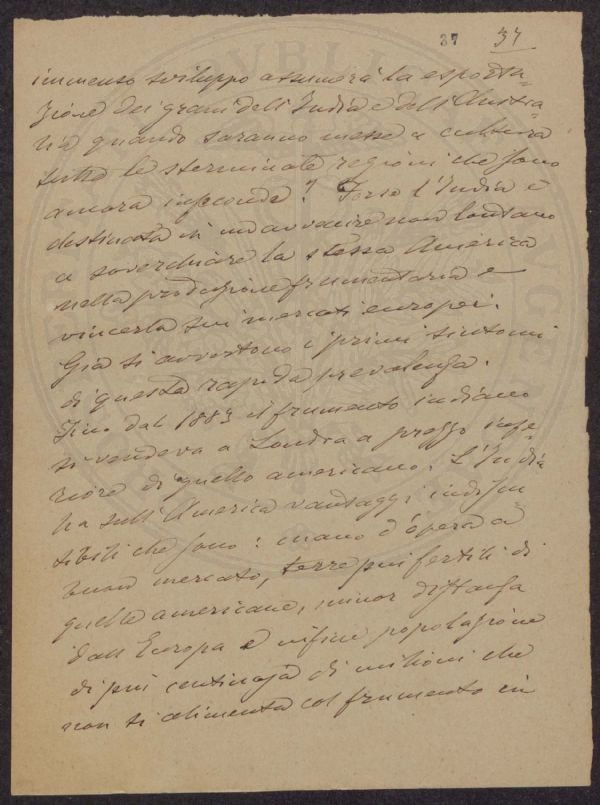 37 37
immenso sviluppo assumerà la esporta-
zione dei grani dell'India e dell'Austra-
lia quando saranno messe a cultura
tutte le sterminate regioni che sono
ancora infeconde? Forse l'India è
destinata in un avvenire non lontano
a soverchiare la stessa America
nella produzione frumentaria e
vincerla sui mercati europei.
Già si avvertono i primi sintomi
di questa rapida prevalenza.
Fino dal 1883 il frumento indiano
si vendeva a Londra a prezzo infe-
riore di quello americano. L'India
ha sull'America vantaggi indiscu
tibili che sono: mano d'opera a
buon mercato, terre più fertili di
quelle americane, minor distanza
dall'Europa e infine popolazione
di più centinaja di milioni che
non si alimenta col frumento in